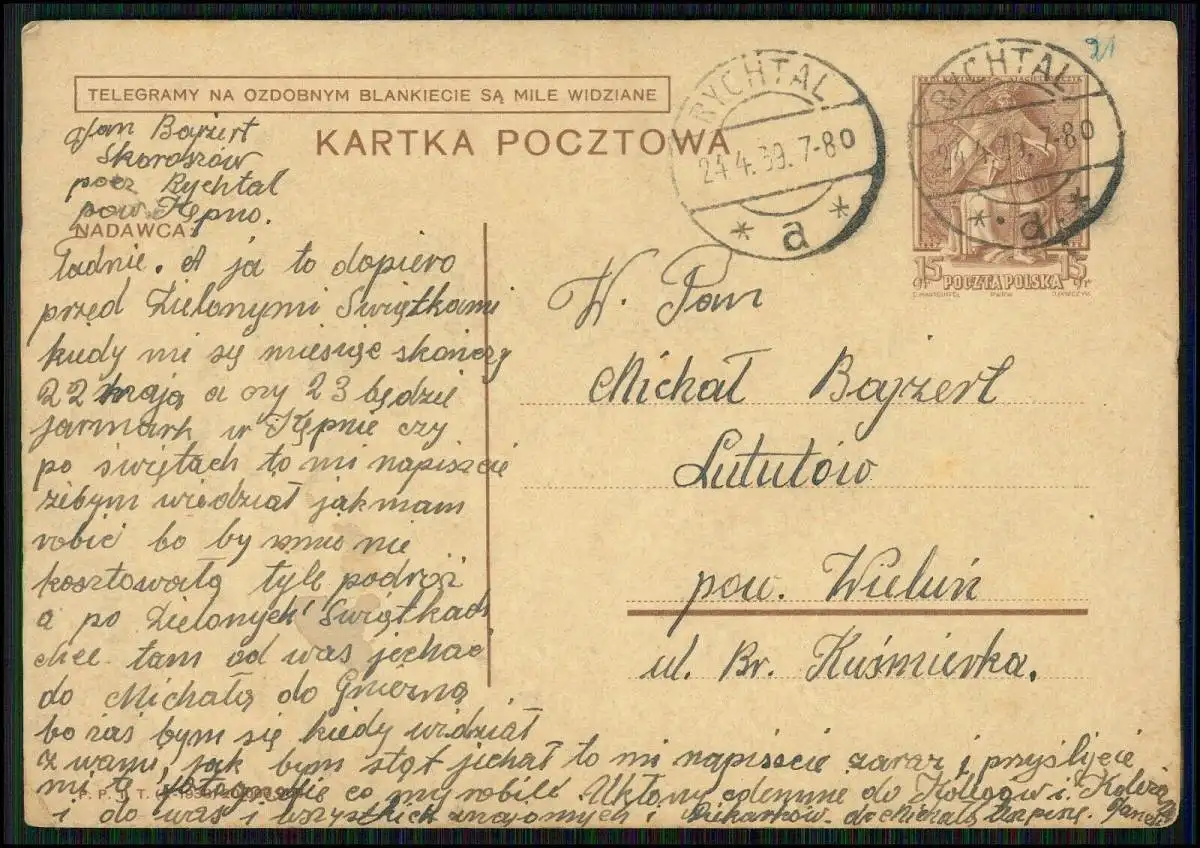 TELEGRAMY NA OZDOBNYM BLANKIECIE SĄ MILE WIDZIANE
KARTKA POCZTOWA
Jan Bajzert
Skoroszów
pocz Rychtal
pow. Kępno.
NADAWCA:
ładnie. A ja to dopiero
przed Zielonymi Świętkami
kiedy mi się miesięc skończy
22 maja a czy 23 będzie
jarmark w Kępnie czy
po świętach to mi napiszcie
żebym wiedział jak mam
robić bo by mnie nie
kosztowało tyle podróż
a po Zielonych Świątkach
chce tam od was jechać
do Michała do Gniezna
bo zaś bym się kiedy widział
z wami, jak bym stąt jechał to mi napiszcie zaraz i przyślijcie
mi co my robili Ukłony do Kolegów i
i do was i wszystkich znajomych i do Michała
RYCHTAL
24.4.39. 7-80
* a *
RYCHTAL
24.4.39. 7-80
* a *
21
15 gr POCZTA POLSKA 15 gr
W. Pan
Michał Bajzert
Lututów
pow. Wieluń
ul. Br. Kuśmierka.